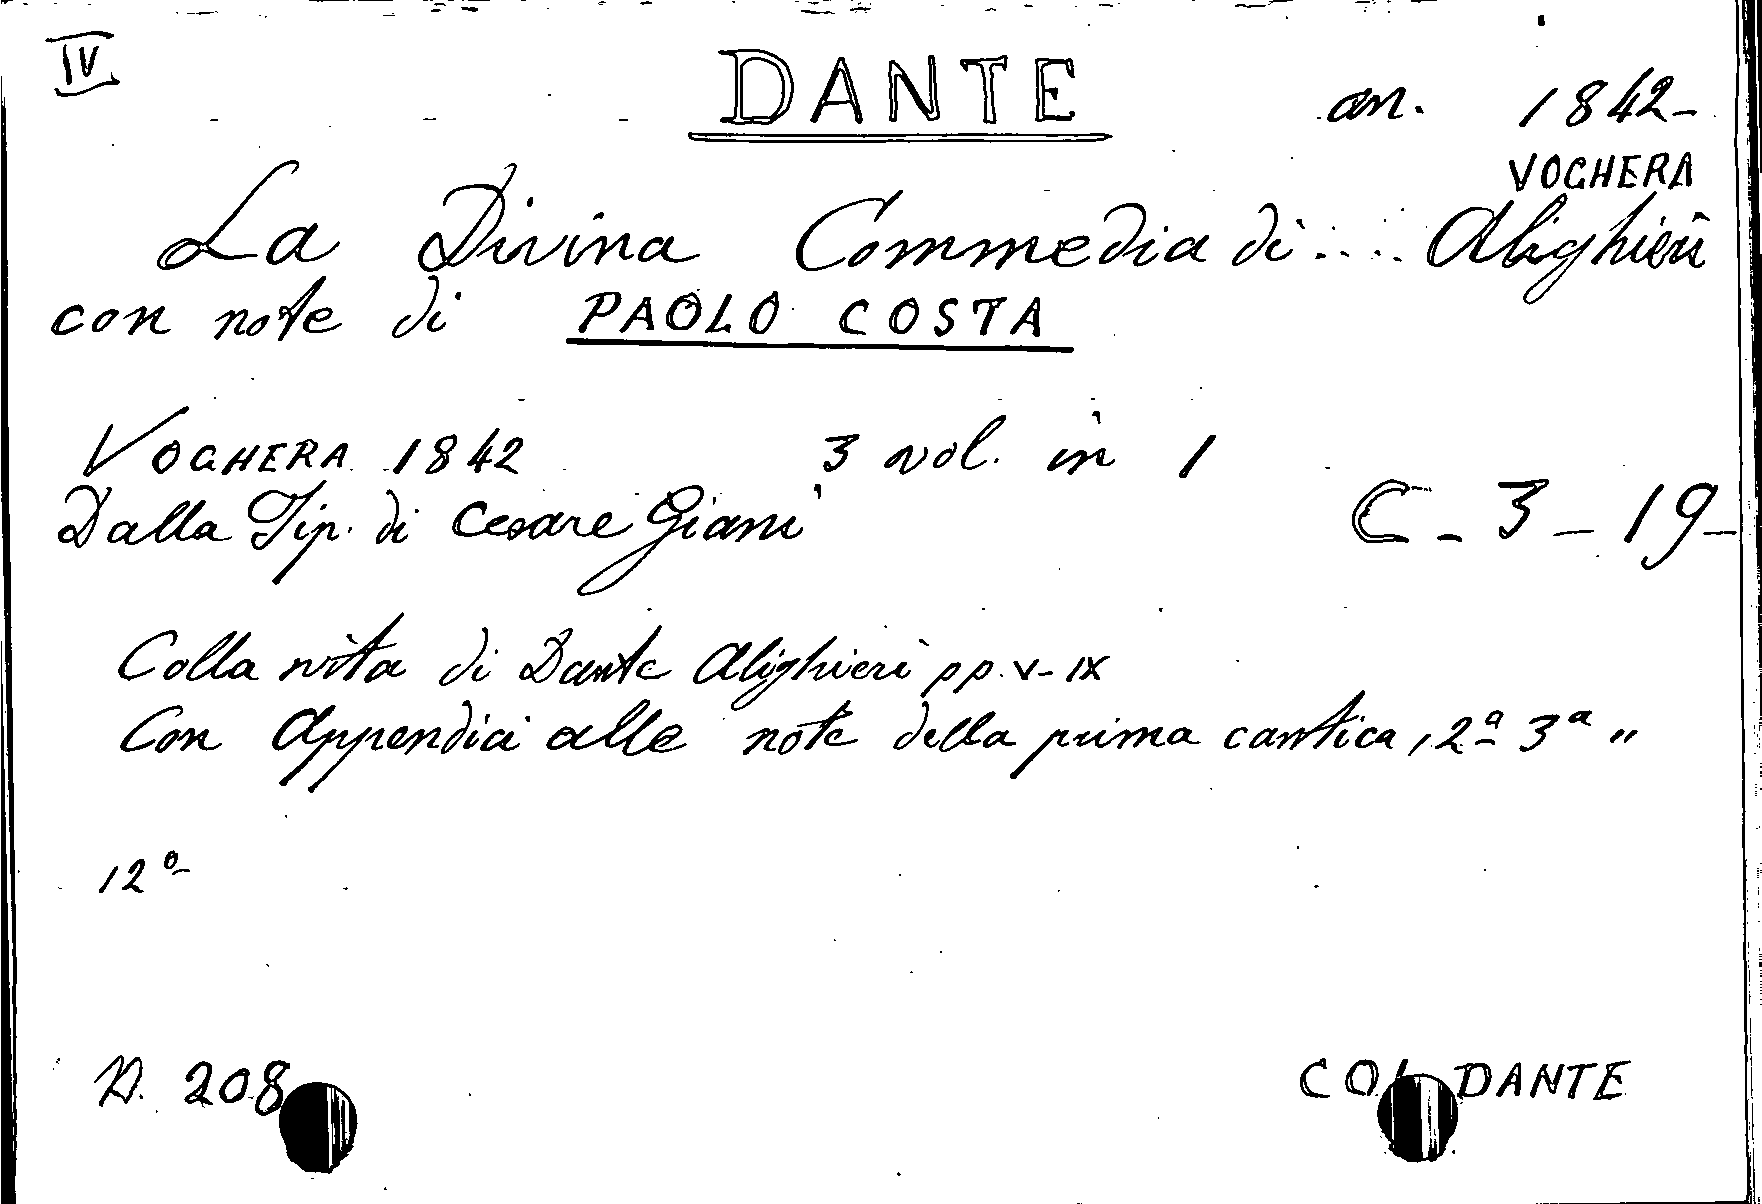 IV
DANTE an. 1842-
VOGHERA
La Divina Commedia di .... Alighieri
con note di PAOLO COSTA
VOGHERA 1842 3 vol. in 1
Dalla Tip. di Cesare Giani C - 3 - 19 -
Colla vita di Dante Alighieri pp. V-IX
Con Appendici alle note della prima cantica, 2ª 3ª "
12º
D. 208 COL DANTE